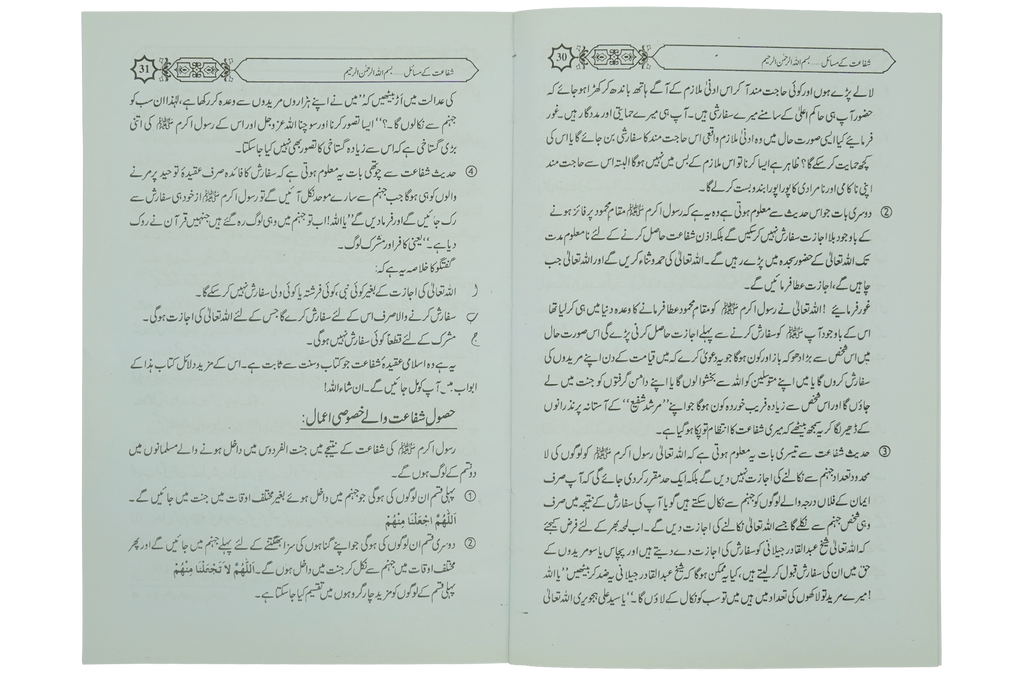 شفاعت کے مسائل ..... بسم اللہ الرحمٰن الرحیم
30
لالے پڑے ہوں اور کوئی حاجت مند آکر اس ادنیٰ ملازم کے آگے ہاتھ باندھ کر کھڑا ہو جائے کہ
حضور آپ ہی حاکم اعلیٰ کے سامنے میرے سفارشی ہیں۔ آپ ہی میرے حمایتی اور مددگار ہیں۔ غور
فرمایئے کیا ایسی صورت حال میں وہ ادنیٰ ملازم واقعی اس حاجت مند کا سفارشی بن جائے گا یا اس کی
کچھ حمایت کر سکے گا؟ ظاہر ہے ایسا کرنا تو اس ملازم کے بس میں نہیں ہوگا البتہ اس سے حاجت مند
اپنی ناکامی اور نامرادی کا پورا پورا بندوبست کرلے گا۔
② دوسری بات جو اس حدیث سے معلوم ہوتی ہے وہ یہ ہے کہ رسول اکرم ﷺ مقام محمود پر فائز ہونے
کے باوجود بلا اجازت سفارش نہیں کرسکیں گے بلکہ اذن شفاعت حاصل کرنے کے لئے نامعلوم مدت
تک اللہ تعالیٰ کے حضور سجدہ میں پڑے رہیں گے۔ اللہ تعالیٰ کی حمد و ثناء کریں گے اور اللہ تعالیٰ جب
چاہیں گے، اجازت عطا فرمائیں گے۔
غور فرمایئے! اللہ تعالیٰ نے رسول اکرم ﷺ کو مقام محمود عطا فرمانے کا وعدہ دنیا میں ہی کرلیا تھا
اس کے باوجود آپ ﷺ کو سفارش کرنے سے پہلے اجازت حاصل کرنی پڑے گی اس صورت حال
میں اس شخص سے بڑا دھوکہ باز اور کون ہوگا جو یہ دعویٰ کرے کہ میں قیامت کے دن اپنے مریدوں کی
سفارش کروں گا یا میں اپنے متوسلین کو اللہ سے بخشوالوں گا یا اپنے دامن گرفتوں کو جنت میں لے
جاؤں گا اور اس شخص سے زیادہ فریب خوردہ کون ہوگا جو اپنے ”مرشد شفیع“ کے آستانہ پر نذرانوں
کے ڈھیر لگا کر یہ سمجھ بیٹھے کہ میری شفاعت کا انتظام تو پکا ہوگیا ہے۔
③ حدیث شفاعت سے تیسری بات یہ معلوم ہوتی ہے کہ اللہ تعالیٰ رسول اکرم ﷺ کو لوگوں کی لا
محدود تعداد جہنم سے نکالنے کی اجازت نہیں دیں گے بلکہ ایک حد مقرر کردی جائے گی کہ آپ صرف
ایمان کے فلاں درجہ والے لوگوں کو جہنم سے نکال سکتے ہیں گویا آپ کی سفارش کے نتیجہ میں صرف
وہی شخص جہنم سے نکلے گا جسے اللہ تعالیٰ نکالنے کی اجازت دیں گے۔ اب لمحہ بھر کے لئے فرض کیجئے
کہ اللہ تعالیٰ شیخ عبدالقادر جیلانی کو سفارش کی اجازت دے دیتے ہیں اور پچاس یا سو مریدوں کے
حق میں ان کی سفارش قبول کرلیتے ہیں، کیا یہ ممکن ہوگا کہ شیخ عبدالقادر جیلانی یہ ضد کر بیٹھیں ”یا اللہ
! میرے مرید تو لاکھوں کی تعداد میں ہیں میں تو سب کو نکال کے لاؤں گا۔“ یا سید علی ہجویری اللہ تعالیٰ
شفاعت کے مسائل ..... بسم اللہ الرحمٰن الرحیم
31
کی عدالت میں اڑ بیٹھیں کہ ”میں نے اپنے ہزاروں مریدوں سے وعدہ کر رکھا ہے، لہٰذا ان سب کو
جہنم سے نکالوں گا۔؟“ ایسا تصور کرنا اور سوچنا اللہ عزوجل اور اس کے رسول اکرم ﷺ کی اتنی
بڑی گستاخی ہے کہ اس سے زیادہ گستاخی کا تصور بھی نہیں کیا جاسکتا۔
④ حدیث شفاعت سے چوتھی بات یہ معلوم ہوتی ہے کہ سفارش کا فائدہ صرف عقیدۂ توحید پر مرنے
والوں کو ہی ہوگا جب جہنم سے سارے موحد نکل آئیں گے تو رسول اکرم ﷺ از خود ہی سفارش سے
رک جائیں گے اور فرمادیں گے ”یا اللہ! اب تو جہنم میں وہی لوگ رہ گئے ہیں جنہیں قرآن نے روک
دیا ہے۔“ یعنی کافر اور مشرک لوگ۔
گفتگو کا خلاصہ یہ ہے کہ:
ا۔ اللہ تعالیٰ کی اجازت کے بغیر کوئی نبی، کوئی فرشتہ یا کوئی ولی سفارش نہیں کرسکے گا۔
ب۔ سفارش کرنے والا صرف اس کے لئے سفارش کرے گا جس کے لئے اللہ تعالیٰ کی اجازت ہوگی۔
ج۔ مشرک کے لئے قطعاً کوئی سفارش نہیں ہوگی۔
یہ ہے وہ اسلامی عقیدۂ شفاعت جو کتاب و سنت سے ثابت ہے۔ اس کے مزید دلائل کتاب ہذا کے
ابواب میں آپ کو مل جائیں گے۔ ان شاء اللہ!
حصول شفاعت والے خصوصی اعمال:
رسول اکرم ﷺ کی شفاعت کے نتیجے میں جنت الفردوس میں داخل ہونے والے مسلمانوں میں
دو قسم کے لوگ ہوں گے۔
① پہلی قسم ان لوگوں کی ہوگی جو جہنم میں داخل ہوئے بغیر مختلف اوقات میں جنت میں جائیں گے۔
اَللّٰهُمَّ اجْعَلْنَا مِنْهُمْ
② دوسری قسم ان لوگوں کی ہوگی جو اپنے گناہوں کی سزا بھگتنے کے لئے پہلے جہنم میں جائیں گے اور پھر
مختلف اوقات میں جہنم سے نکل کر جنت میں داخل ہوں گے۔ اَللّٰهُمَّ لاَ تَجْعَلْنَا مِنْهُمْ
پہلی قسم کے لوگوں کو مزید چار گروہوں میں تقسیم کیا جاسکتا ہے۔